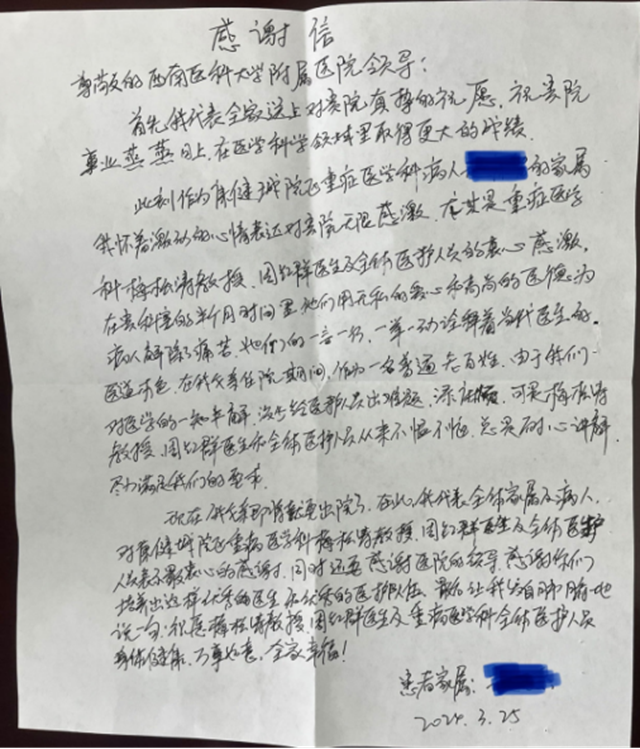 感谢信
尊敬的西南医科大学附属医院领导：
首先我代表全家送上对贵院真挚的祝愿，祝贵院
事业蒸蒸日上，在医学科学领域里取得更大的成绩．
此刻作为康健城院区重症医学科病人的家属
我怀着激动的心情表达对贵院无限感激，尤其是重症医学
科梅松涛教授、周红群医生及全体医护人员的衷心感激．
在贵科室的半个月时间里他们用无私的爱心和高尚的医德为
病人解除了痛苦，她们的一言一行，一举一动诠释着当代医生的
医道本色．在我父亲住院期间，作为一名普通老百姓，由于我们
对医学的一知半解，没少给医护人员出难题，添麻烦，可是梅松涛
教授、周红群医生和全体医护人员从来不愠不恼，总是耐心讲解，
尽力满足我们的要求．
现在我父亲即将就要出院了，在此，我代表全体家属及病人，
对康健城院区重病医学科梅松涛教授、周红群医生及全体医护
人员表示最衷心的感谢，同时还要感谢医院的领导，感谢你们
培养出这样优秀的医生和优秀的医护队伍．最后让我发自肺腑地
说一句：祝愿梅松涛教授、周红群医生及重病医学科全体医护人员
身体健康，万事如意，全家幸福！
患者家属：
2024.3.25